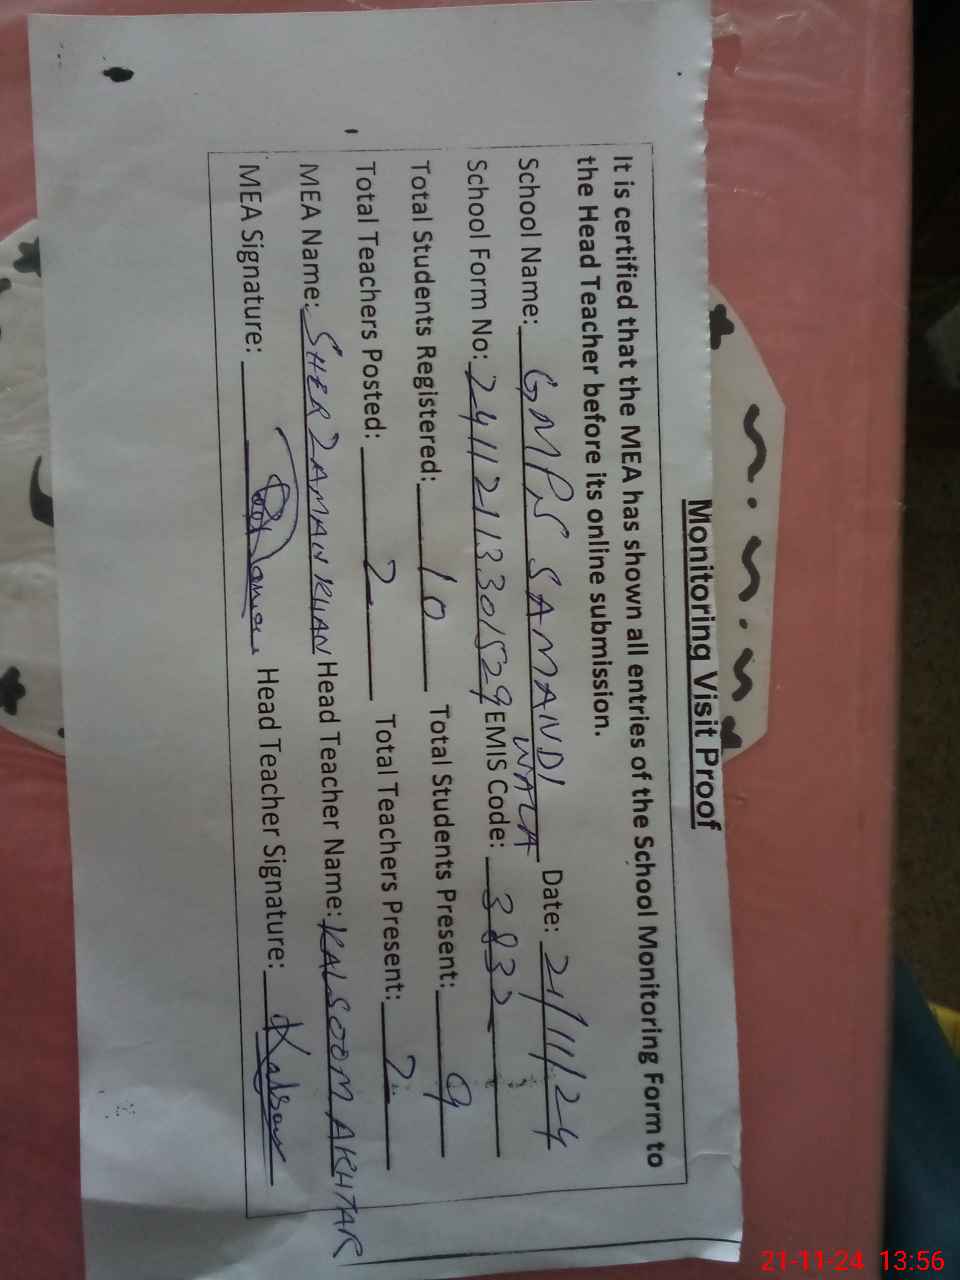 Monitoring Visit Proof
It is certified that the MEA has shown all entries of the School Monitoring Form to
the Head Teacher before its online submission.
School Name: GMPS SAMANDI WALA Date: 21/11/24
School Form No: 24112113301529 EMIS Code: 3832
Total Students Registered: 10 Total Students Present: 9
Total Teachers Posted: 2 Total Teachers Present: 2
MEA Name: SHER ZAMAN KHAN Head Teacher Name: KALSOOM AKHTAR
MEA Signature: Head Teacher Signature: Kalsoom
21-11-24 13:56